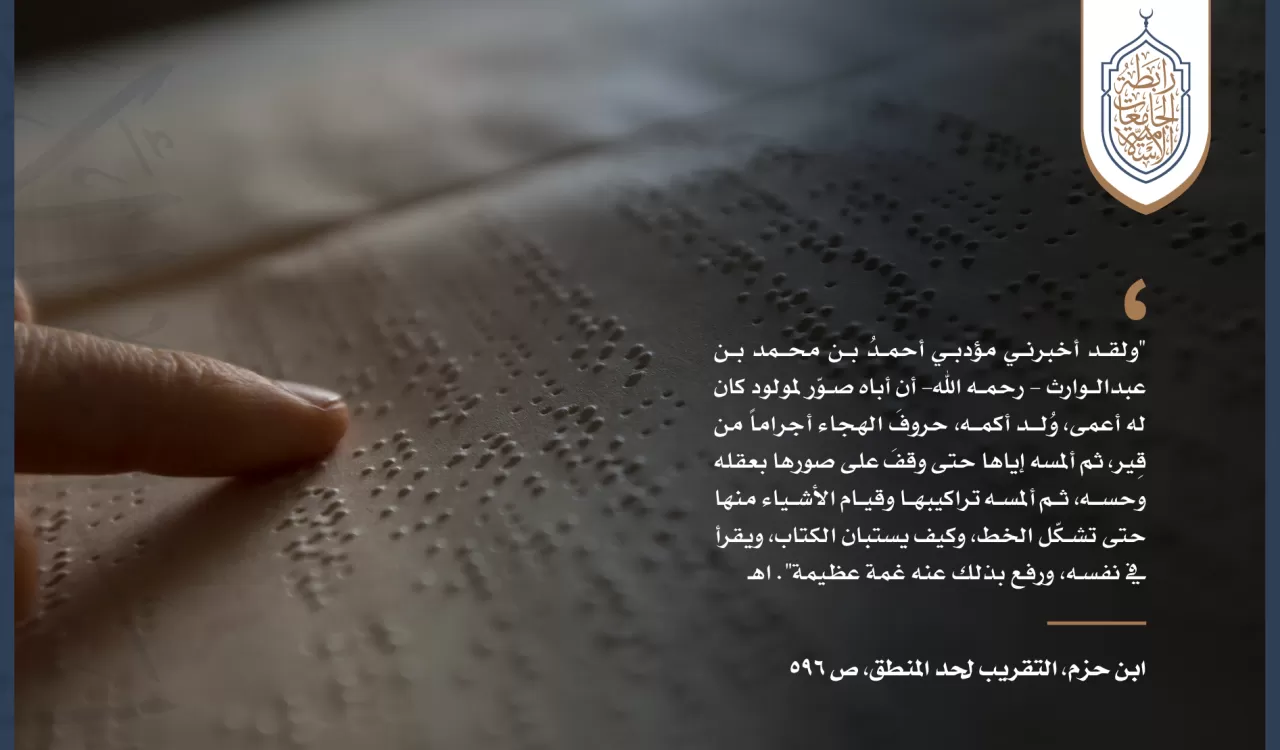 رابطة
الجامعات
الإسلامية
"ولقد أخبرني مؤدبي أحمدُ بن محمد بن
عبدالوارث - رحمه الله- أن أباه صوّر لمولود كان
له أعمى، وُلد أكمه، حروفَ الهجاء أجراماً من
قِير، ثم ألمسه إياها حتى وقفَ على صورها بعقله
وحسه، ثم ألمسه تراكيبها وقيام الأشياء منها
حتى تشكّل الخط، وكيف يستبان الكتاب، ويقرأ
في نفسه، ورفع بذلك عنه غمة عظيمة". اهـ
ابن حزم، التقريب لحد المنطق، ص ٥٩٦